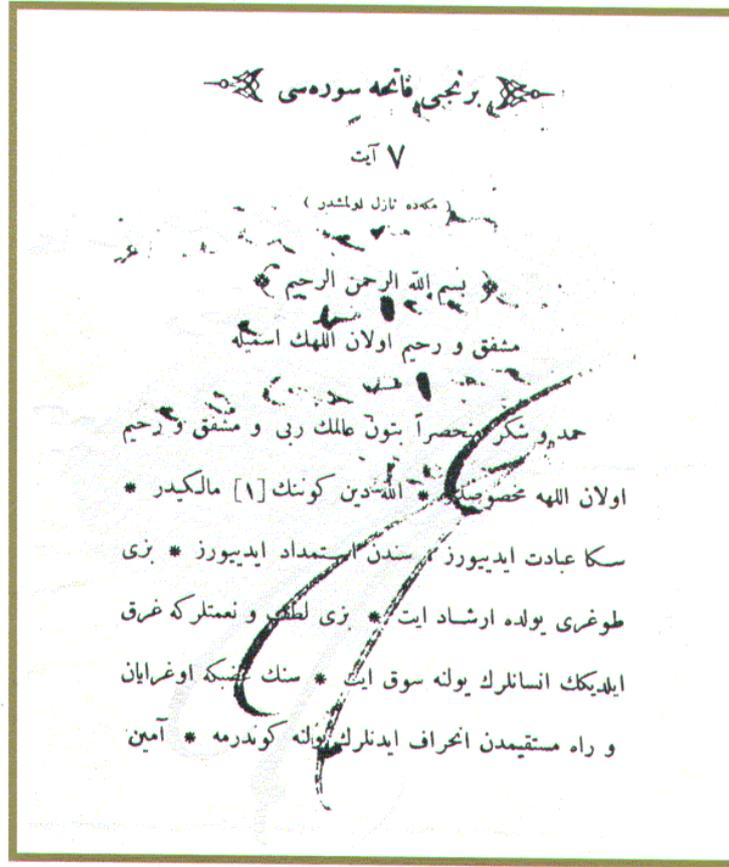 برنجی فاتحه سوره‌سی
٧ آیت
( مکه‌ده نازل اولمشدر )
﴿ بسم الله الرحمن الرحیم ﴾
مشفق و رحیم اولان اللهك اسمیله
حمد و شکر منحصراً بتون عالمك ربی و مشفق و رحیم
اولان اللهه مخصوصدر * الله دین کوننك [١] مالکیدر *
سکا عبادت ایدییورز ، سندن استمداد ایدییورز * بزی
طوغری یولده ارشاد ایت * بزی لطف و نعمتلرکه غرق
ایلدیكك انسانلرك یولنه سوق ایت * سنك غضبکه اوغرایان
و راه مستقیمدن انحراف ایدنلرك یولنه کوندرمه * آمین